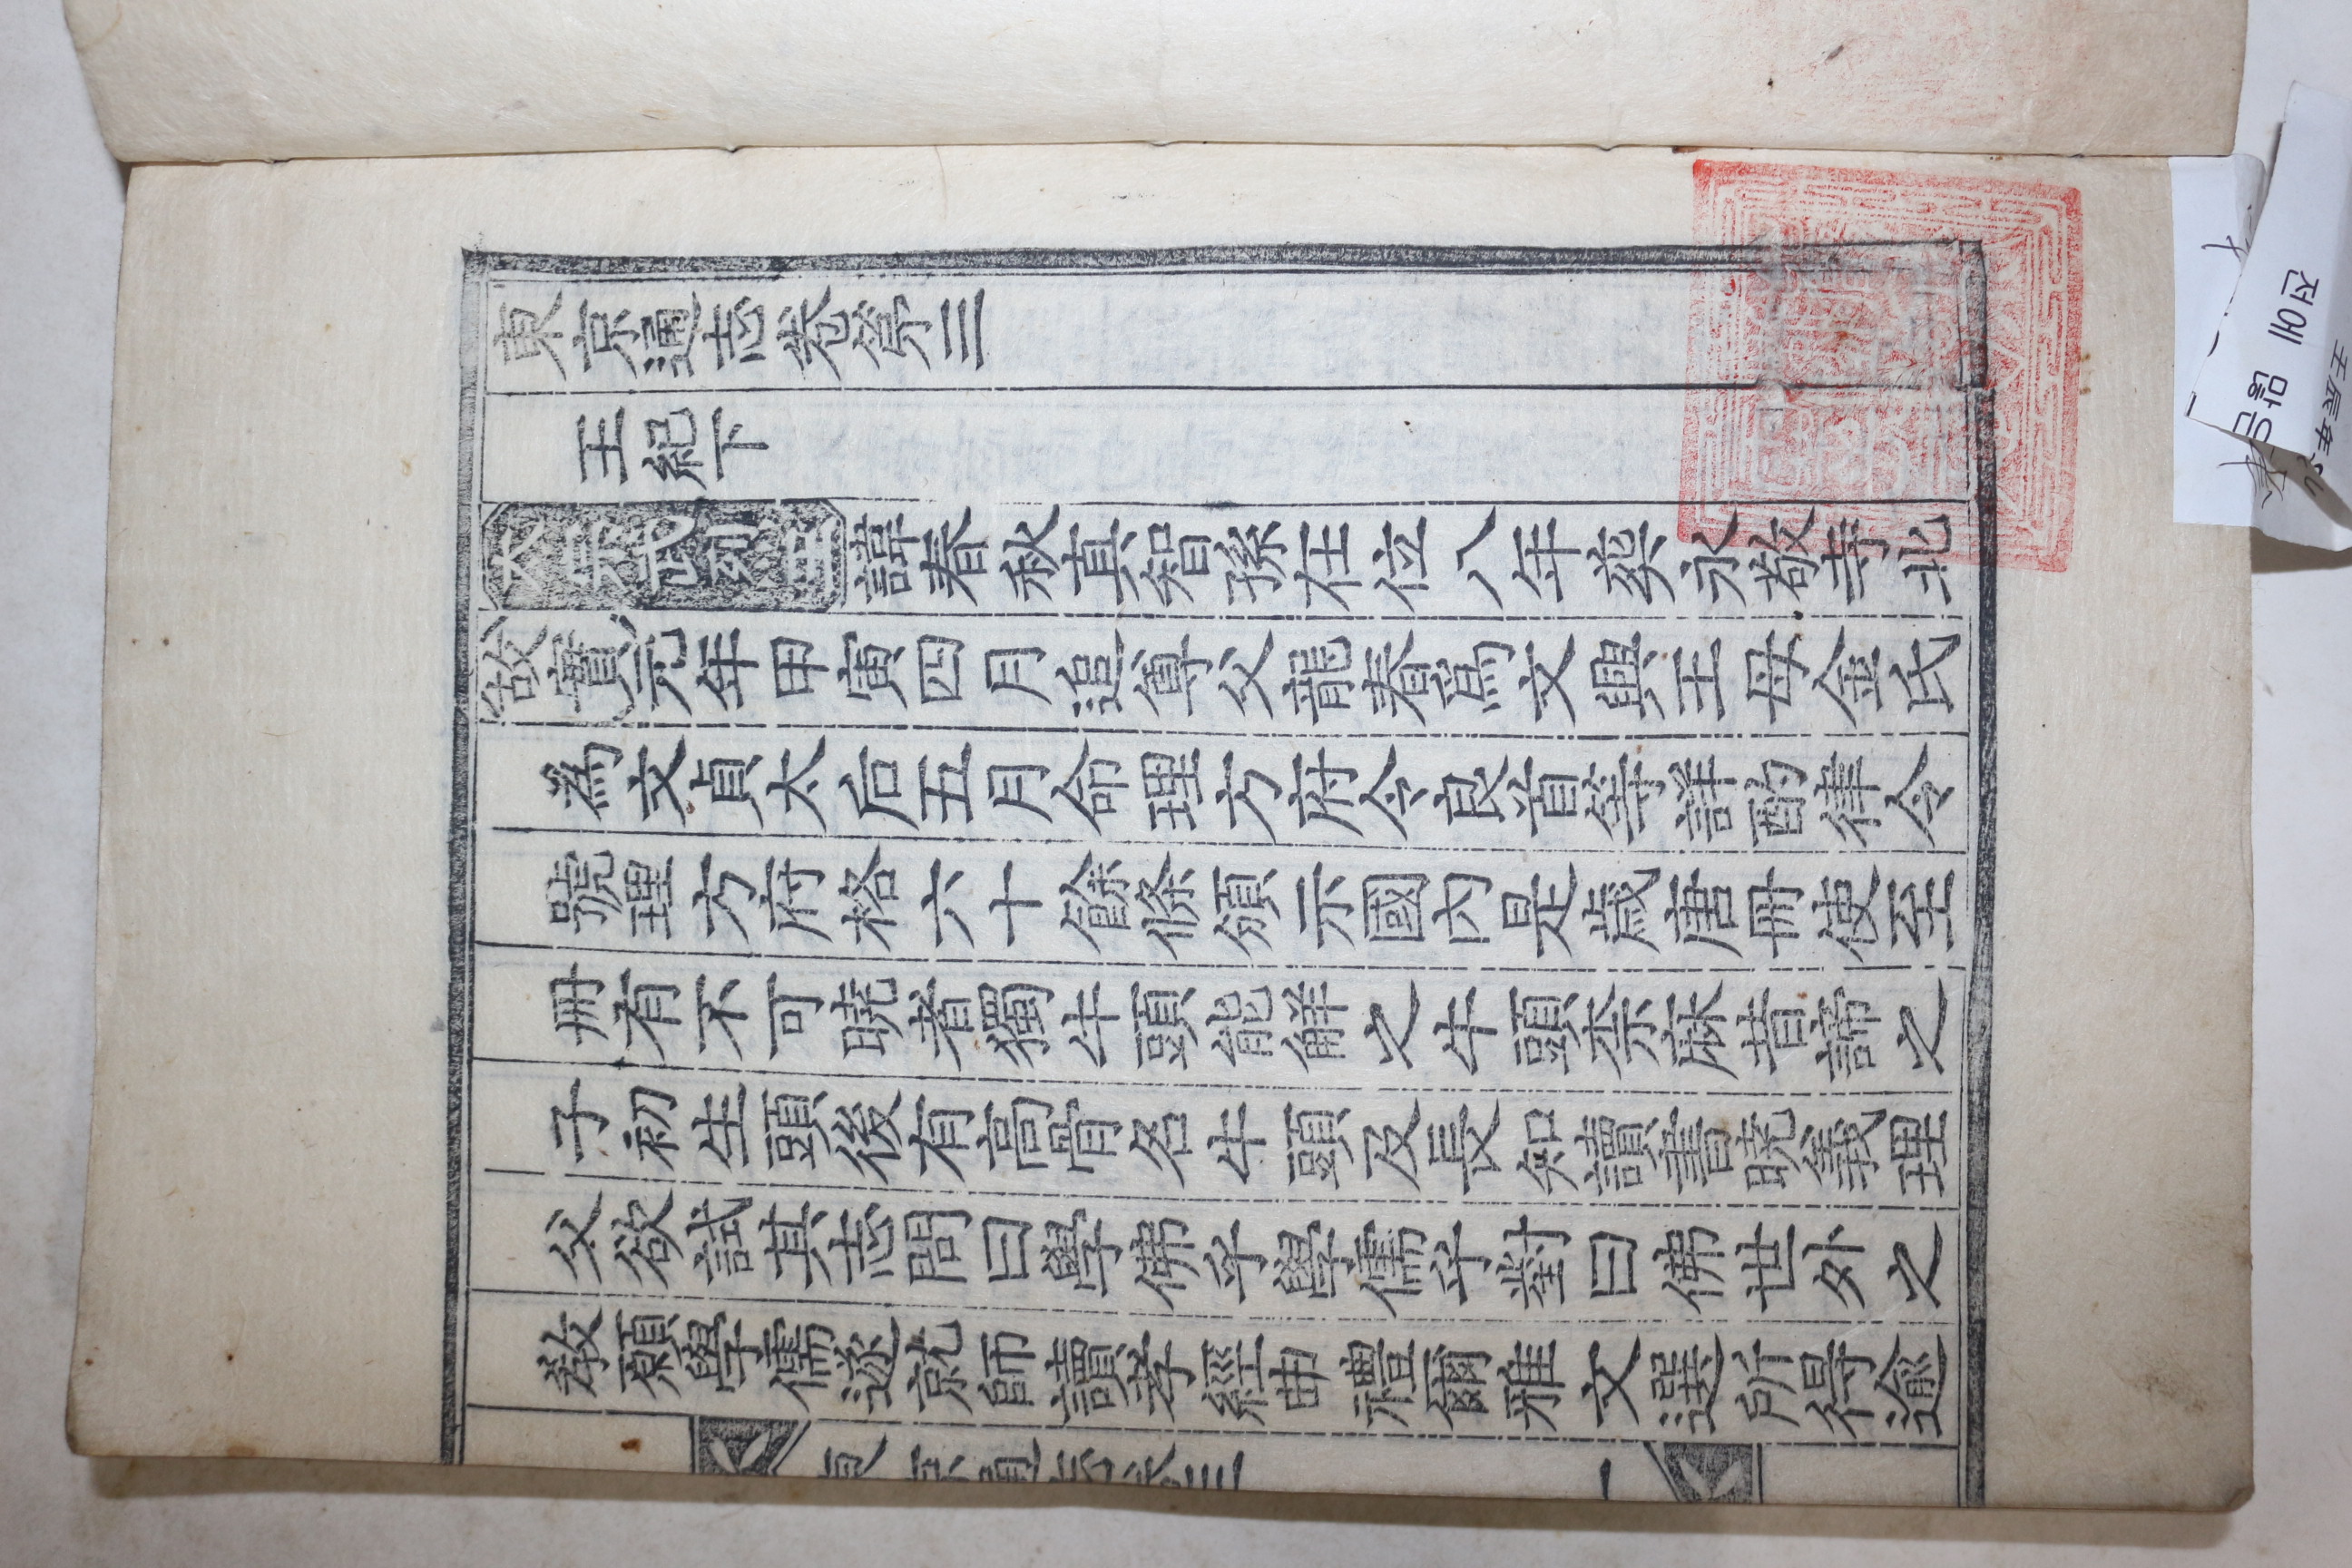 東京通志卷第三
王紀下
太宗武烈王諱春秋真智孫在位八年葬永敬寺北
故實元年甲寅四月追尊父龍春爲文興王母金氏
為文貞太后五月命理方府令良首等詳酌律令
號理方府格六十餘條頒示國內是歲唐冊使至
冊有不可曉者獨牛頭能解之牛頭柰麻昔諦之
子初生頭後有高骨名牛頭及長知讀書曉義理
父欲試其志問曰學佛乎學儒乎對曰佛世外之
敎願學儒遂就師讀孝經曲禮爾雅文選所得逾
東京通志卷三
一
전에
壬辰年